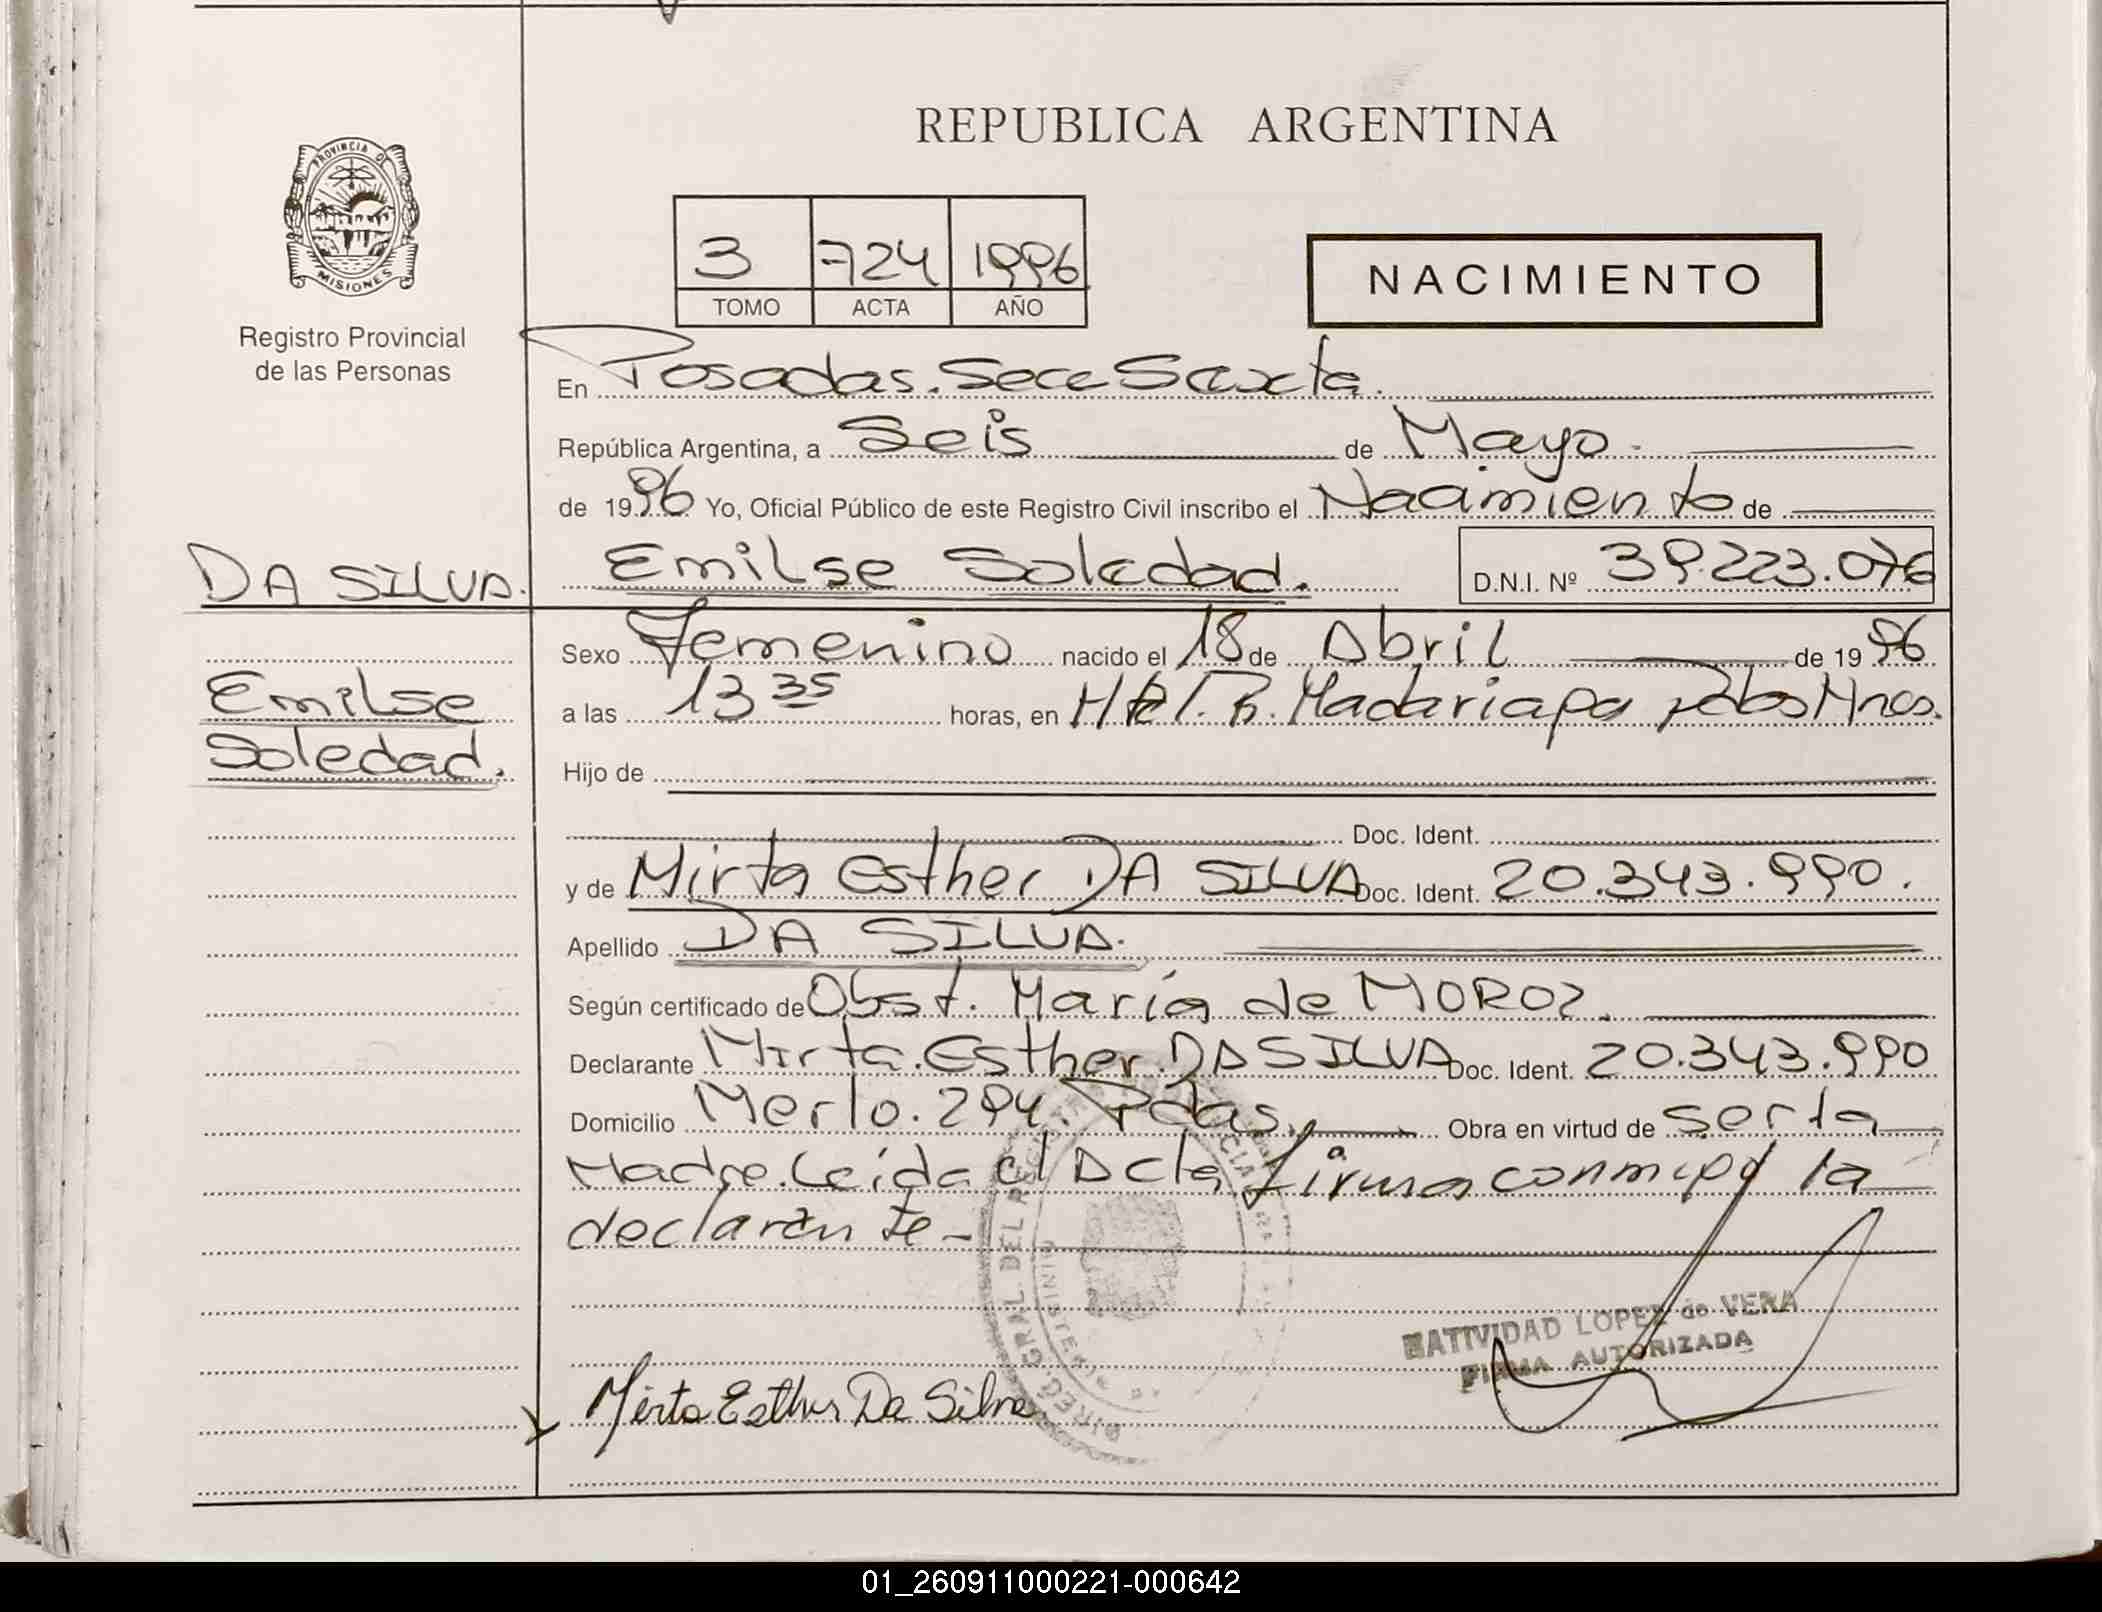 REPUBLICA ARGENTINA
PROVINCIA DE
MISIONES
Registro Provincial
de las Personas
3 724 1996
TOMO ACTA AÑO
NACIMIENTO
En Posadas. Secc Sexta.
República Argentina, a Seis de Mayo.
de 1996 Yo, Oficial Público de este Registro Civil inscribo el Nacimiento de
DA SILVA. Emilse Soledad. D.N.I. Nº 39.223.076
Sexo Femenino nacido el 18 de Abril de 1996
Emilse
a las 13 35 horas, en R. Madariaga Pdas Mnes.
Soledad.
Hijo de
Doc. Ident.
y de Mirta Esther DA SILVA Doc. Ident. 20.343.990.
Apellido DA SILVA.
Según certificado de Obst. María de MOROZ.
Declarante Mirta. Esther. DA SILVA Doc. Ident. 20.343.990
Domicilio Merlo. 294. Pdas. Obra en virtud de ser la
Madre. Leída el Acta firma conmigo la
declarante-
NATIVIDAD LOPEZ de VERA
FIRMA AUTORIZADA
Mirta Esther Da Silva
01_260911000221-000642